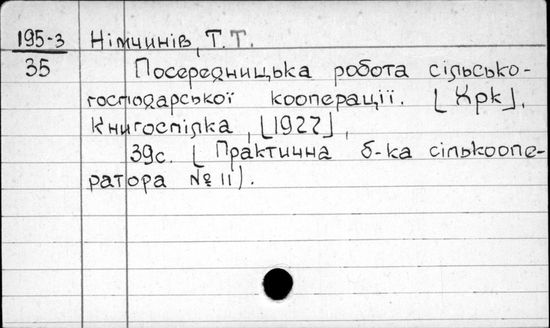 195-3 Німчинів, Т. Т.
35 Посередницька робота сільсько-
господарської кооперації. [Хрк],
Книгоспілка, [1927],
39с. [Практична б-ка сількоопе-
ратора № 11).